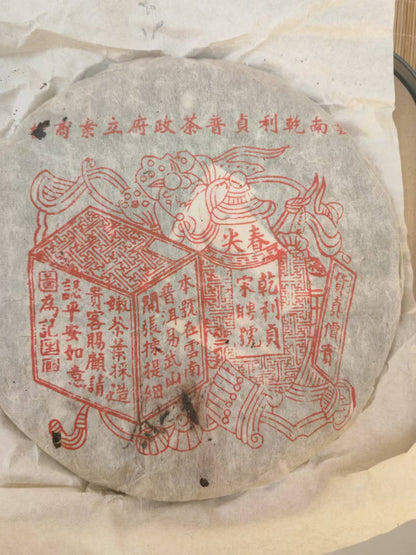 南乾利貞普茶政府立案商
春尖
乾利貞
宋聘號
價實
本號在雲南
普洱易武山
開張揀提細
嫩茶葉採造
貴客賜顧請
認平安如意
圖為記